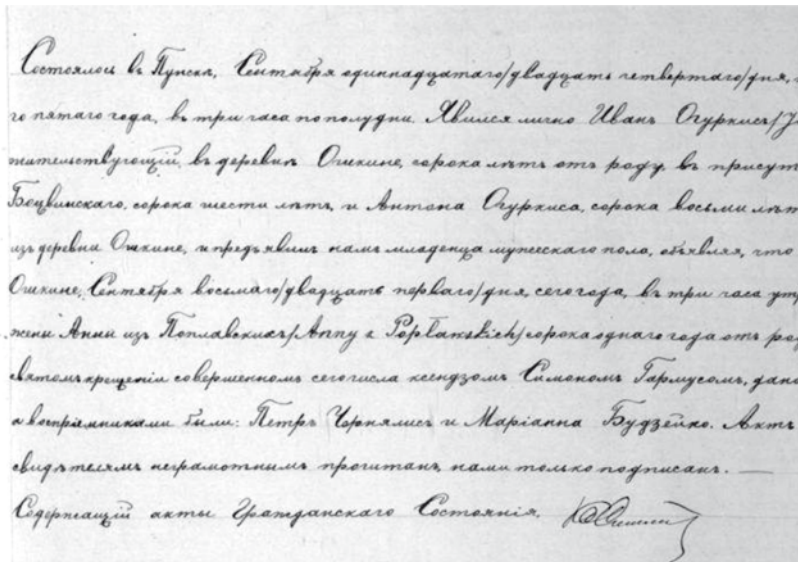 Состоялось въ Пунскѣ, Сентября одиннадцатаго/двадцать четвертаго/дня,
го пятаго года, въ три часа пополудни. Явился лично Иванъ Огуркисъ/
жительствующій въ деревнѣ Ошкине, сорока лѣтъ отъ роду, въ присут
Бецвинскаго, сорока шести лѣтъ, и Антона Огуркиса, сорока восьми лѣтъ
изъ деревни Ошкине, и предъявилъ намъ младенца мужескаго пола, объявляя, что
Ошкине, Сентября восьмаго/двадцать перваго/дня, сего года, въ три часа ут
жены Анны изъ Поплавскихъ/Anny z Popławskich/сорока однаго года отъ ро
святомъ крещеніи совершенномъ сего числа ксендзомъ Симономъ Гармусомъ, дано
а воспріемниками были: Петръ Чернялисъ и Маріанна Будзейко. Актъ
свидѣтелямъ неграмотнымъ прочитанъ, нами только подписанъ. —
Содержащій акты Гражданскаго Состоянія.